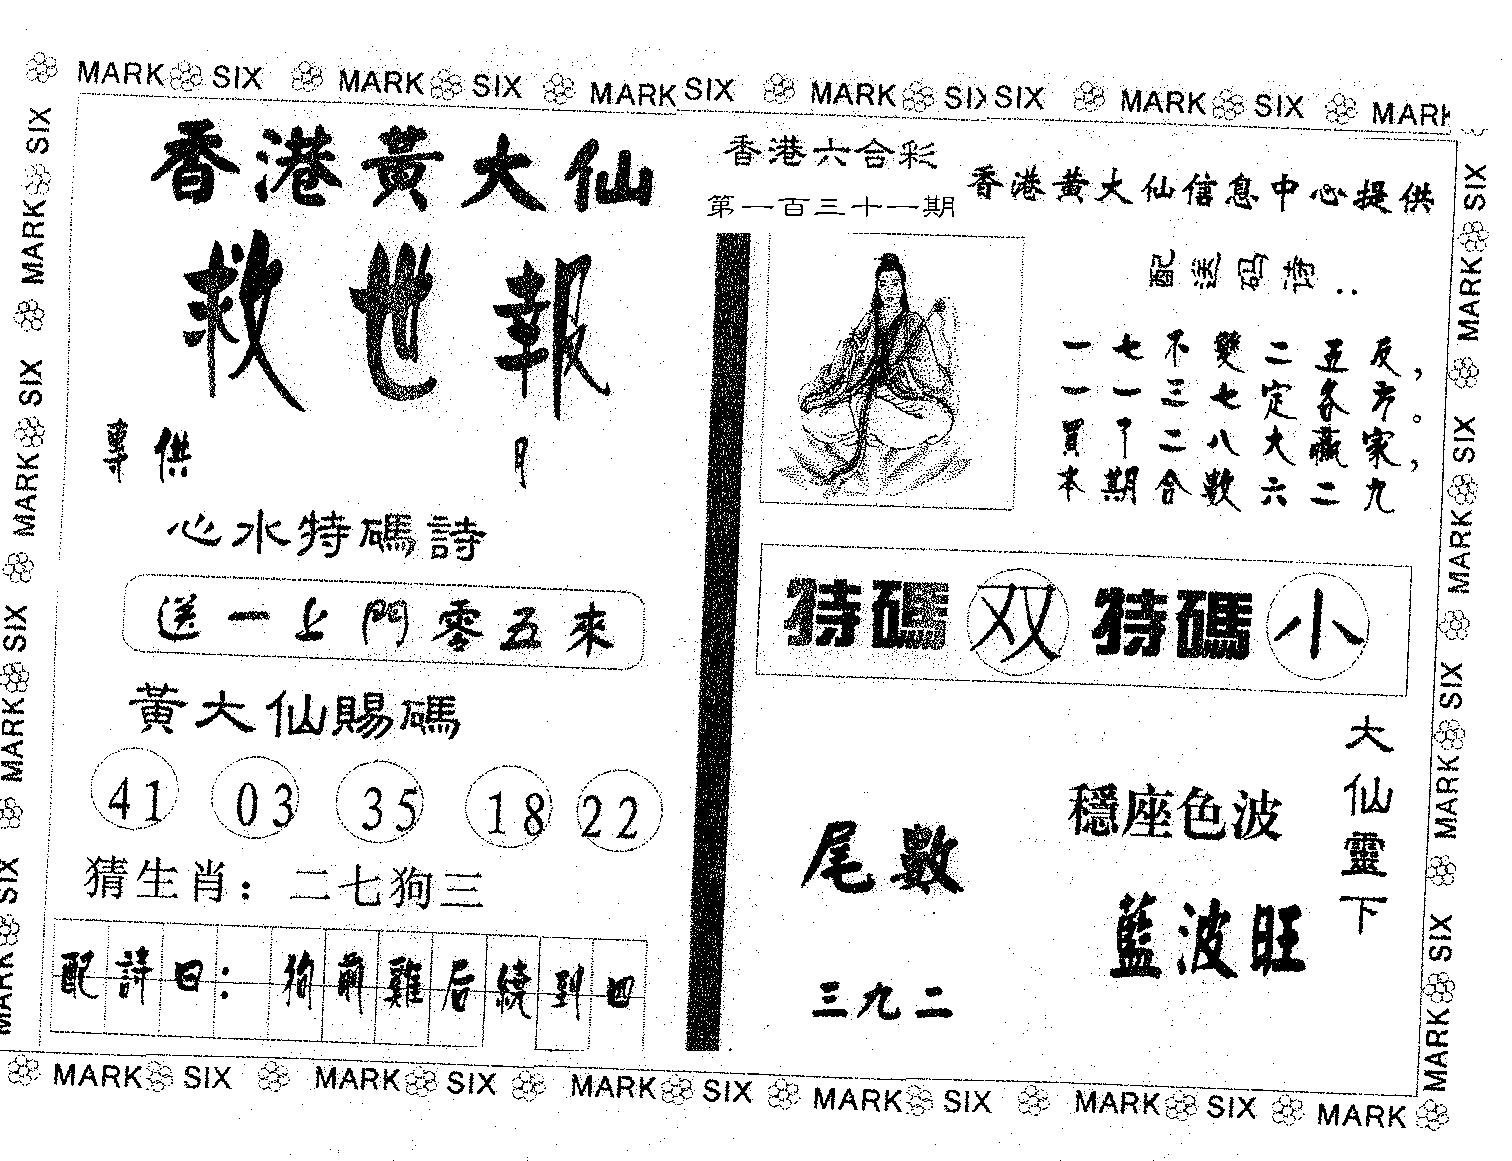 MARK SIX MARK SIX MARK SIX MARK SIX SIX MARK SIX MARK
香港黃大仙
救世報
專供
心水特碼詩
送一上門零五來
黃大仙賜碼
41 03 35 18 22
猜生肖：二七狗三
配詩曰：狗前雞后續到四
香港六合彩
第一百三十一期
香港黃大仙信息中心提供
配送码诗..
一七不雙二五反，
一一三七定各方。
買了二八大贏家，
本期合數六二九
特碼 双 特碼 小
大仙靈下
穩座色波
藍波旺
尾數
三九二
MARK SIX MARK SIX MARK SIX MARK SIX
MARK SIX MARK SIX MARK SIX MARK SIX
MARK SIX MARK SIX MARK SIX MARK SIX MARK SIX MARK